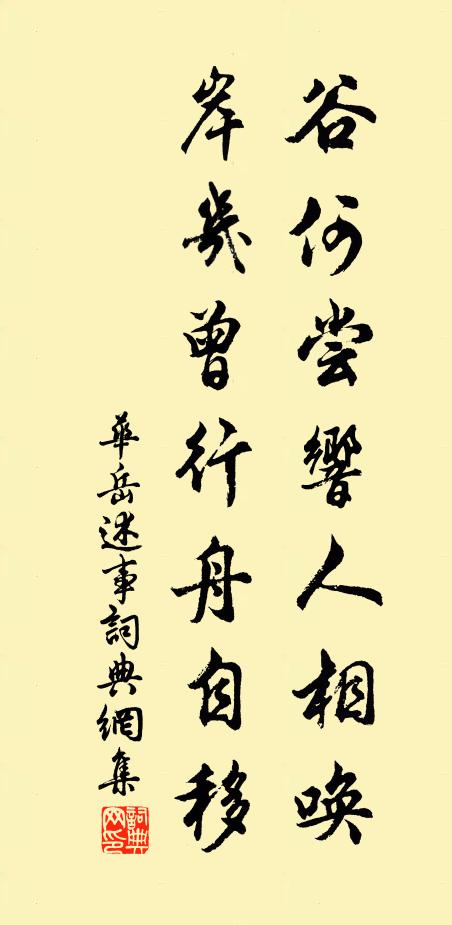 谷何尝響人相唤
岸幾曾行舟自移
華岳述事詞典網集
詞典网印